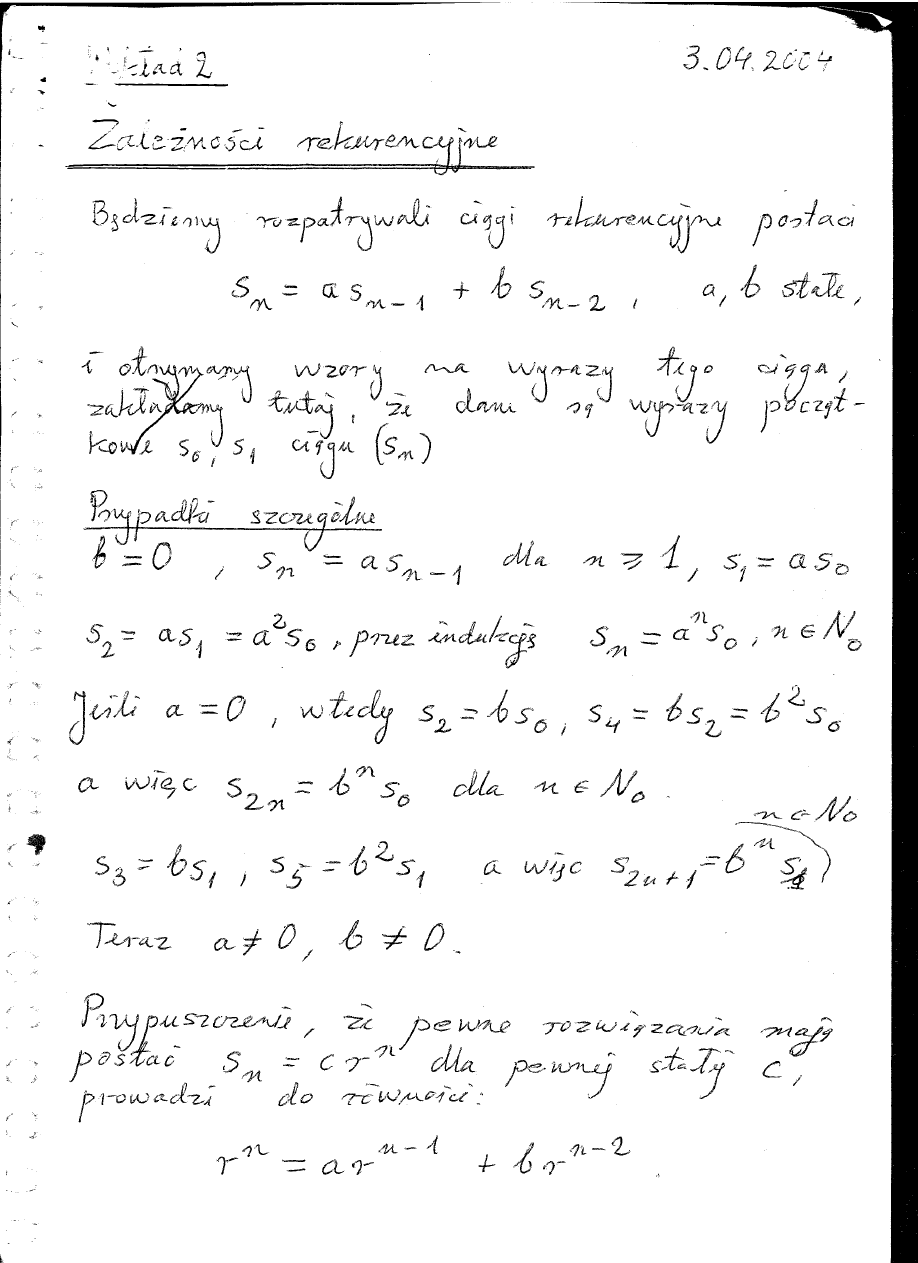 Wykład 2 3.04.2004
Zależności rekurencyjne
Będziemy rozpatrywali ciągi rekurencyjne postaci
sₙ = a sₙ₋₁ + b sₙ₋₂, a, b stałe,
i otrzymamy wzory na wyrazy tego ciągu,
zakładamy tutaj, że dane są wyrazy począt-
kowe s₀, s₁ ciągu (sₙ)
Przypadki szczególne
b = 0, sₙ = a sₙ₋₁ dla n ⩾ 1, s₁ = a s₀
s₂ = a s₁ = a² s₀, przez indukcję sₙ = aⁿ s₀, n ∈ N₀
Jeśli a = 0, wtedy s₂ = b s₀, s₄ = b s₂ = b² s₀
a więc s₂ₙ = bⁿ s₀ dla n ∈ N₀.
n ∈ N₀
s₃ = b s₁, s₅ = b² s₁ a więc s₂ₙ₊₁ = bⁿ s₁
Teraz a ≠ 0, b ≠ 0.
Przypuszczenie, że pewne rozwiązania mają
postać sₙ = c rⁿ dla pewnej stałej c,
prowadzi do równości:
rⁿ = a rⁿ⁻¹ + b rⁿ⁻².